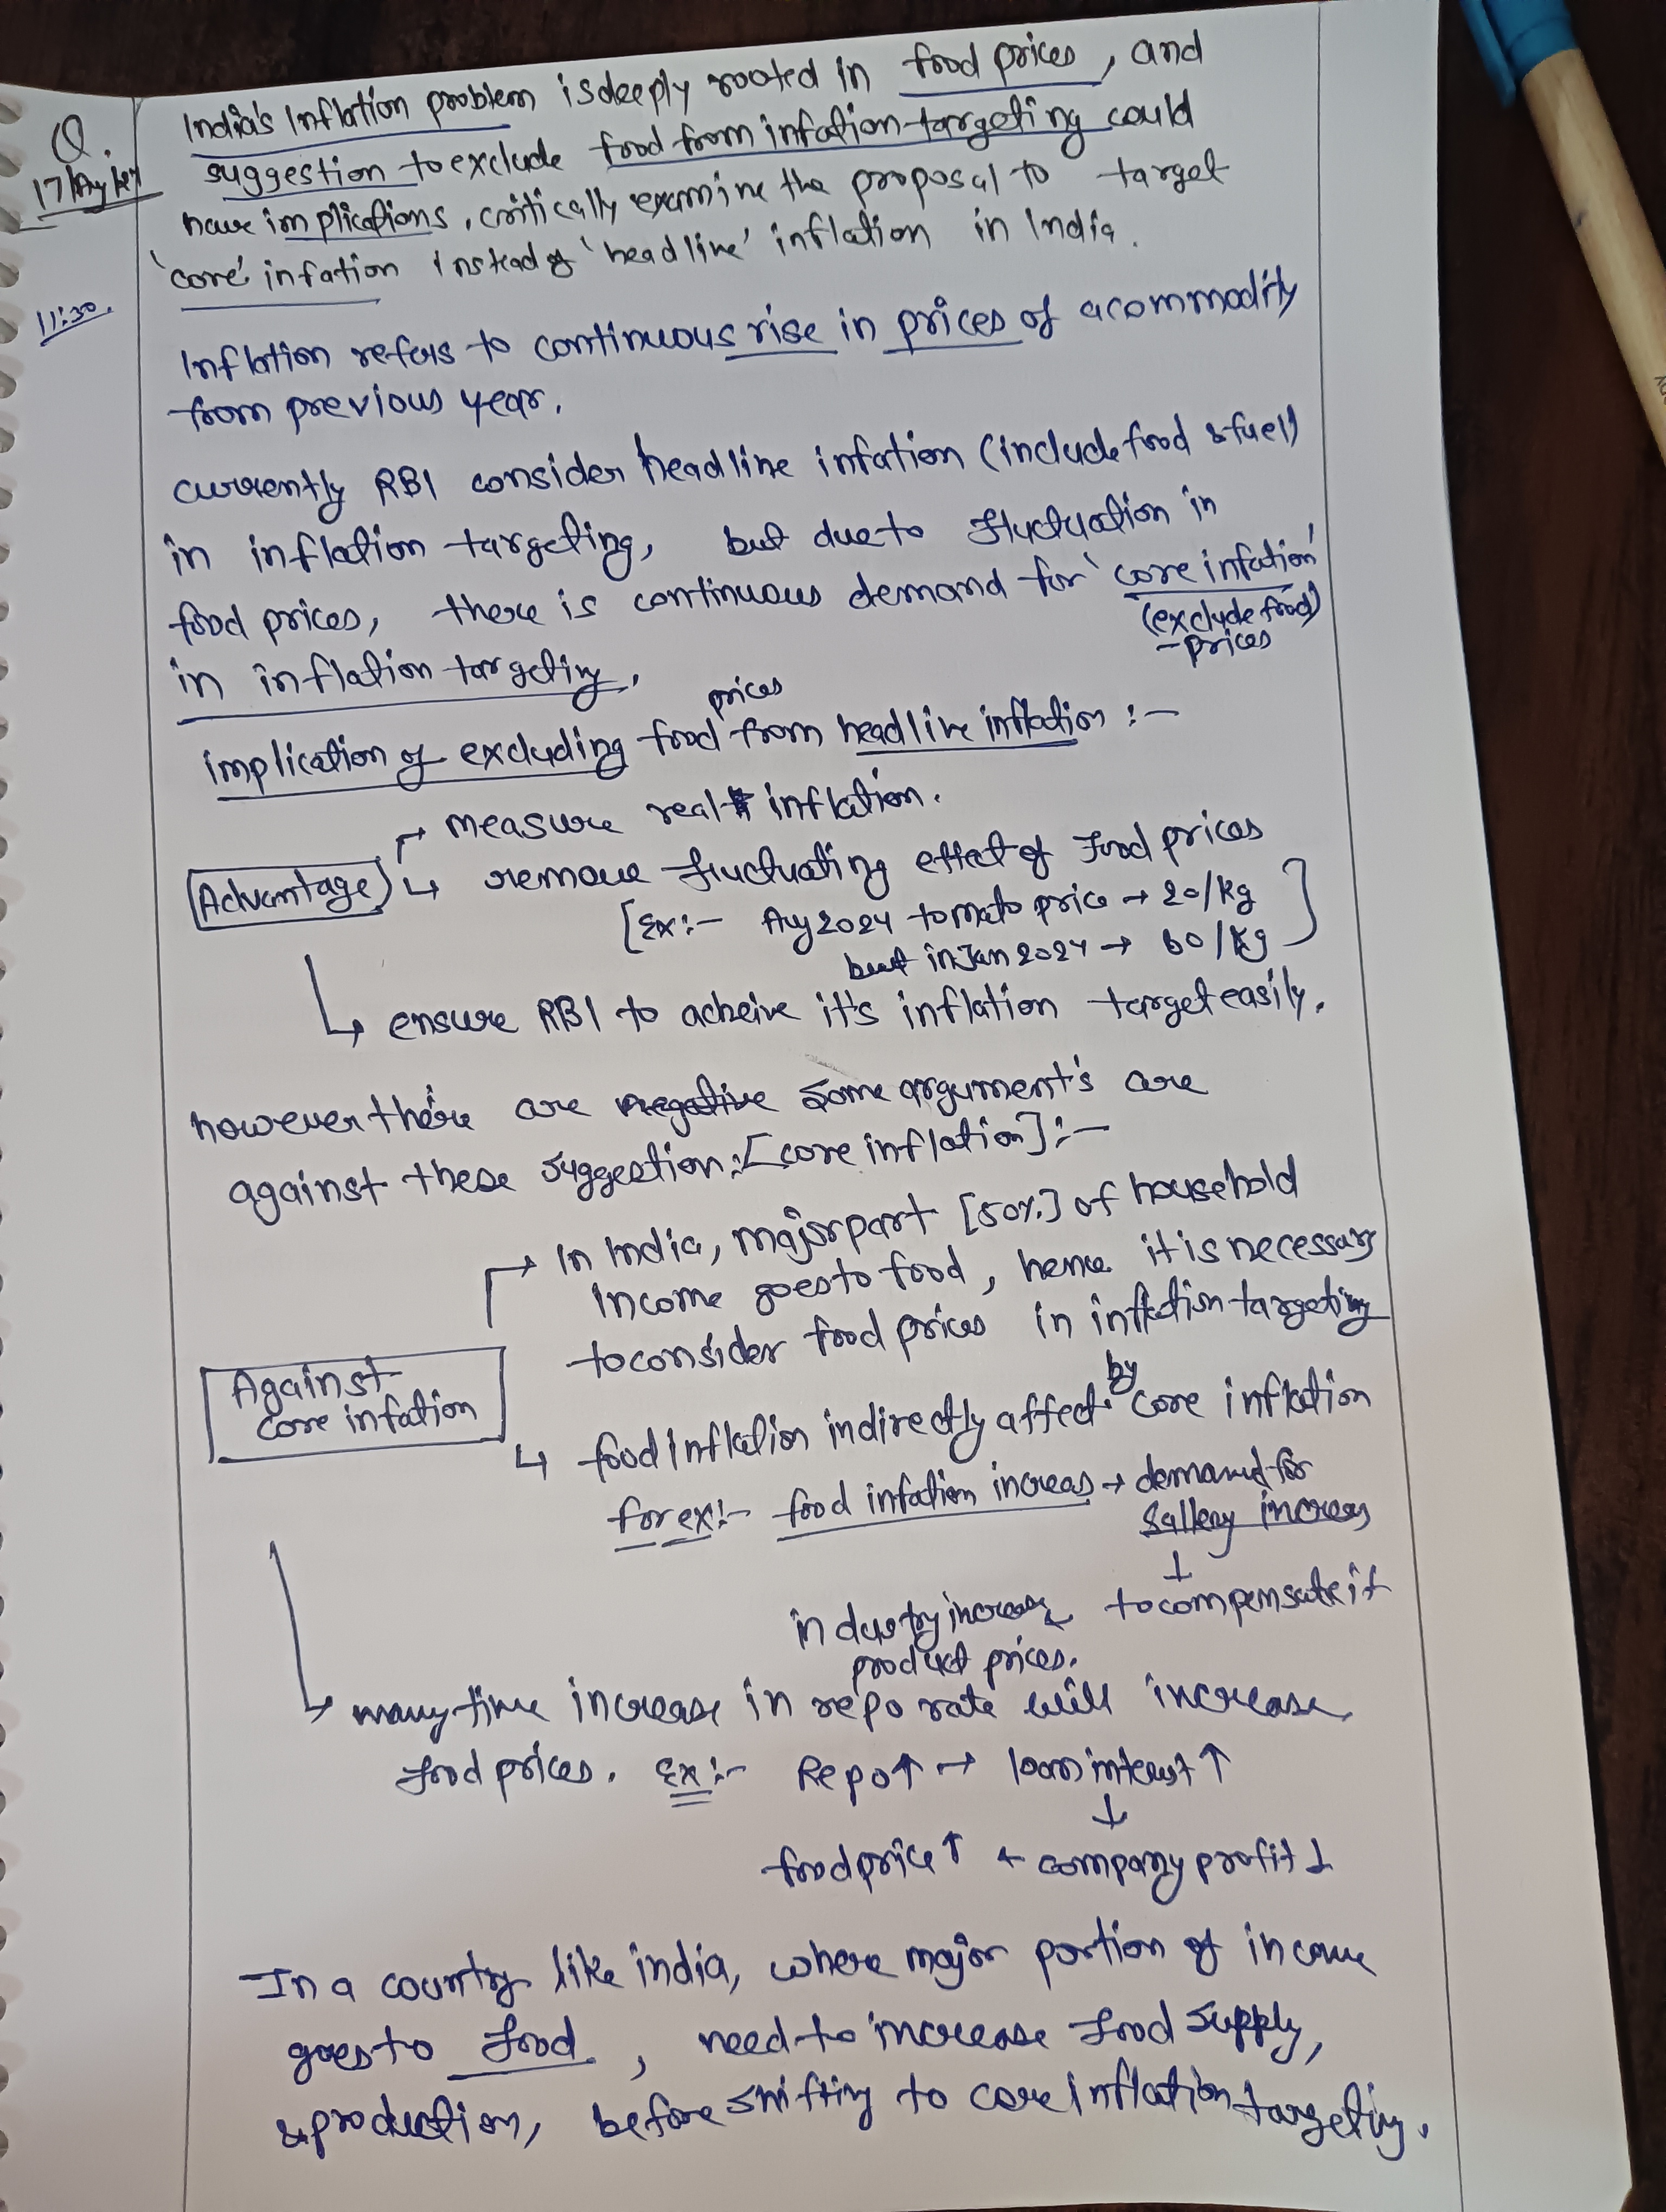 Q. India's Inflation problem is deeply rooted in food prices, and
17 Aug
suggestion to exclude food from infation-targeting could
have implications, critically examine the proposal to target
'core' infation instead of 'headline' inflation in India.
11:30.
Inflation refers to continuous rise in prices of a commodity
from previous year.
currently RBI consider headline infation (include food & fuel)
in inflation targeting, but due to fluctuation in
food prices, there is continuous demand for 'core infation'
(exclude food)
- prices
in inflation targeting.
prices
implication of excluding food from headline inflation :-
→ measure real inflation.
[Advantage] ↳ remove fluctuating effect of food prices
[Ex:- Aug 2024 tomato price → 20/kg
but in Jan 2024 → 60/kg]
↳ ensure RBI to acheive it's inflation target easily.
however there are negative some argument's are
against these suggestion:[core inflation]:-
→ In India, major part [50%] of household
income goes to food, hence it is necessary
to consider food prices in inflation targeting
Against
core infation
by
↳ food inflation indirectly affect core inflation
for ex:- food infation increas → demand for
Sallery increas
↓
industry increase to compensate it
product prices.
↳ many time increase in repo rate will increase
food prices. Ex:- Repo↑ → loan interest ↑
↓
food price ↑ ← company profit ↓
In a country like india, where major portion of income
goes to food, need to increase food supply,
& production, before shifting to core inflation targeting.